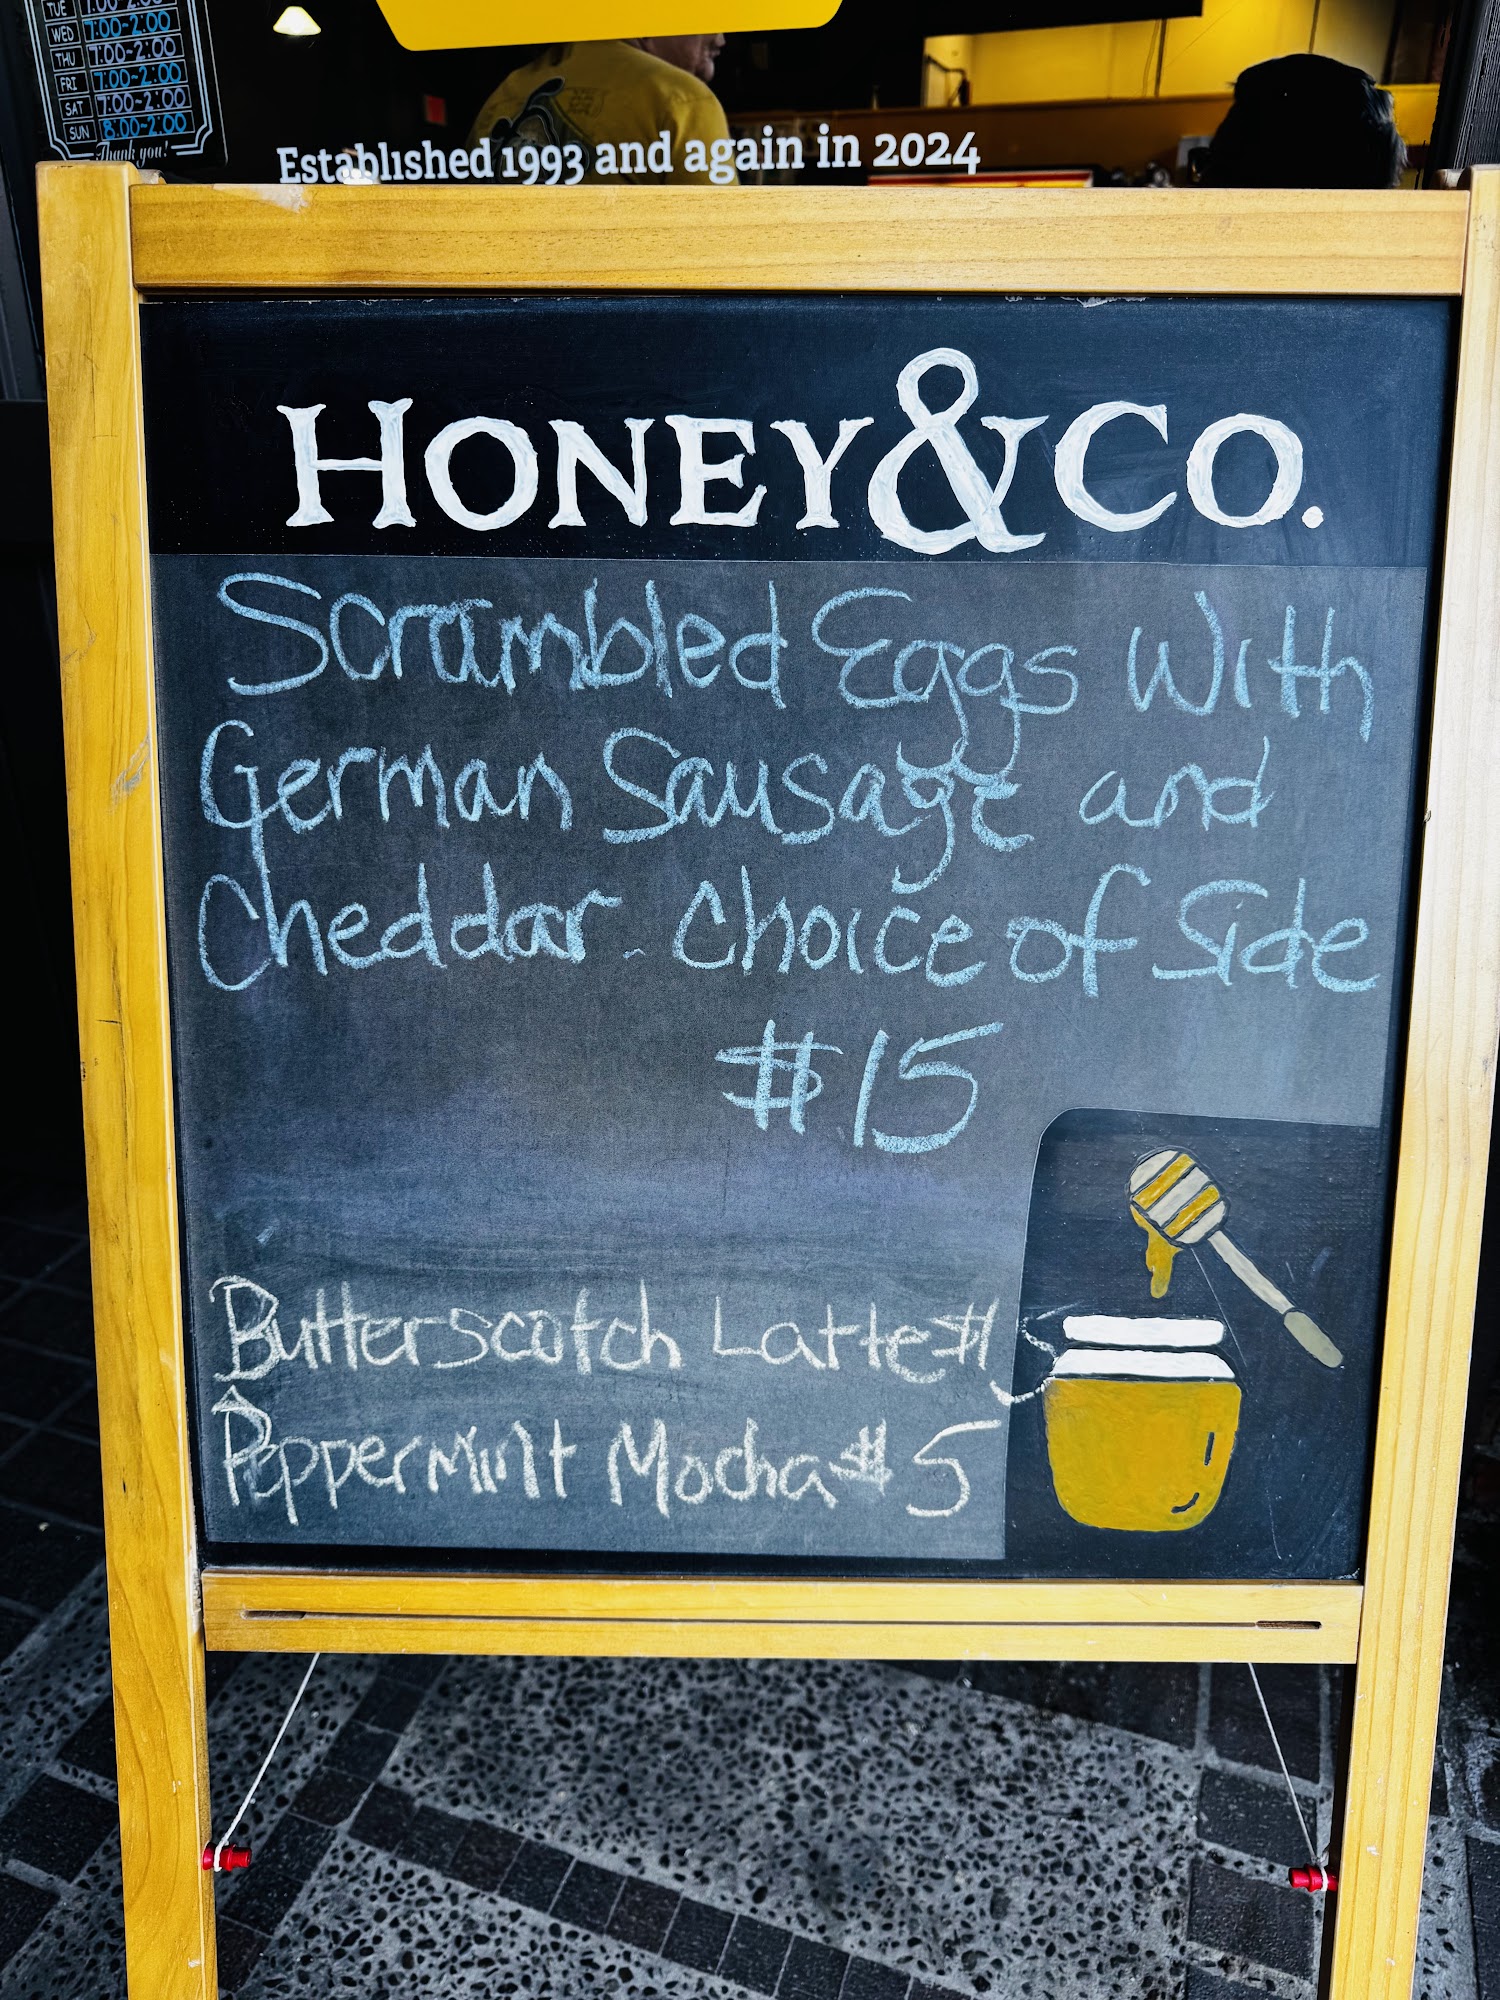 TUE 7:00~2:00
WED 7:00~2:00
THU 7:00~2:00
FRI 7:00~2:00
SAT 7:00~2:00
SUN 8:00~2:00
Thank you!
Established 1993 and again in 2024
HONEY & CO.
Scrambled Eggs With
German Sausage and
Cheddar. Choice of Side
$15
Butterscotch Latte $5
Peppermint Mocha $5